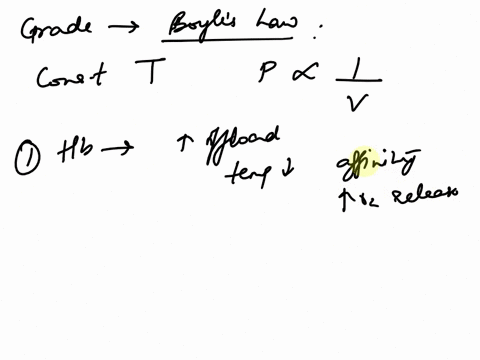 Grade → Boyle's Law :
Const T P ∝ 1/V
① Hb → ↑ offload
temp ↓ affinity
↑ O2 release